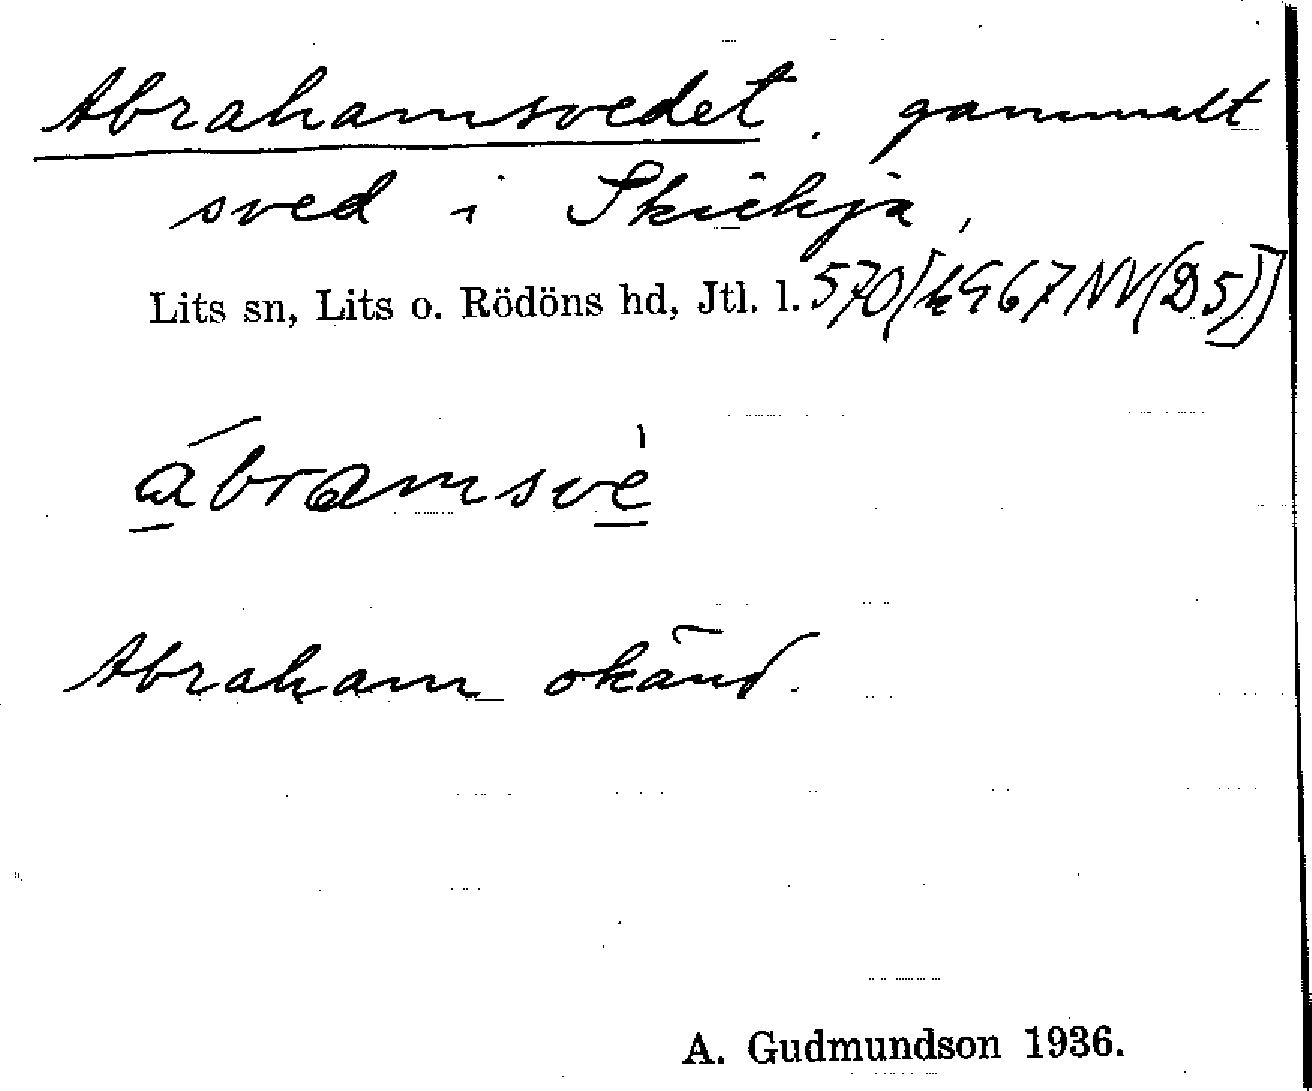 Abrahamsvedet. gammalt
sved i Skickja,
Lits sn, Lits o. Rödöns hd, Jtl. l. 570/[k967NV(D5)]
ábramsvè
Abraham okänd.
A. Gudmundson 1936.